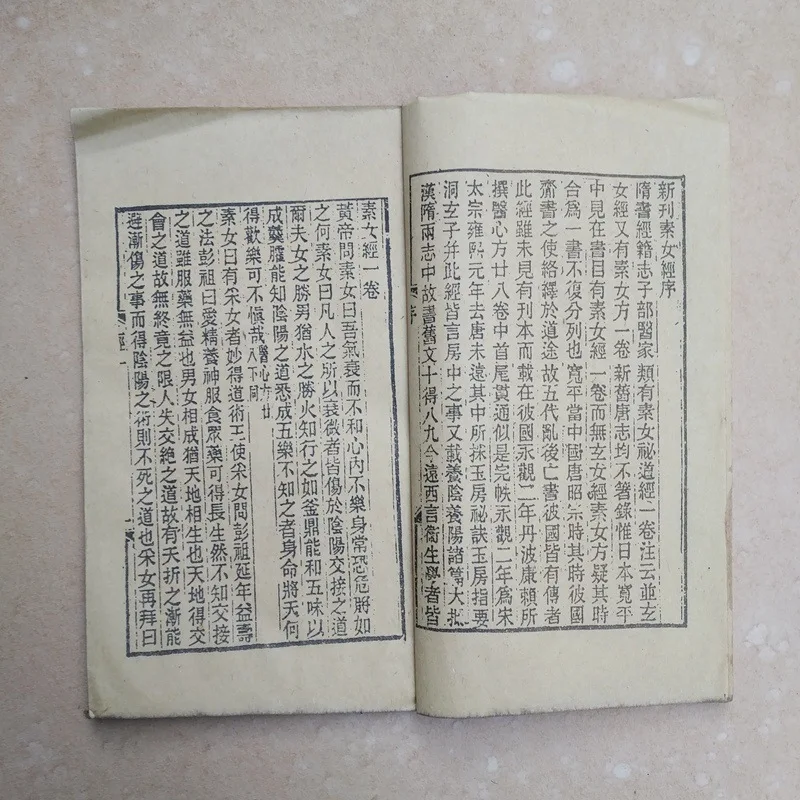 新刊素女經序
隋書經籍志子部醫家類有素女祕道經一卷注云並玄
女經又有素女方一卷新舊唐志均不著錄惟日本寬平
中見在書目有素女經一卷而無玄女經素女方疑其時
合爲一書不復分列也寬平當中國唐昭宗時其時彼國
齎書之使絡繹於道途故五代亂後亡書彼國皆有傳者
此經雖未見有刊本而載在彼國永觀二年丹波康賴所
撰醫心方廿八卷中首尾貫通似是完帙永觀二年爲宋
太宗雍熙元年去唐未遠其中所採玉房祕訣玉房指要
洞玄子并此經皆言房中之事又載養陰養陽諸篇大抵
漢隋兩志中故書舊文十得八九今遠西言衞生學者皆
序
素女經一卷
黃帝問素女曰吾氣衰而不和心內不樂身常恐危將如
之何素女曰凡人之所以衰微者皆傷於陰陽交接之道
爾夫女之勝男猶水之勝火知行之如釜鼎能和五味以
成羹臛能知陰陽之道悉成五樂不知之者身命將夭何
得歡樂可不慎哉醫心方廿八下同
素女曰有采女者妙得道術王使采女問彭祖延年益壽
之法彭祖曰愛精養神服食眾藥可得長生然不知交接
之道雖服藥無益也男女相成猶天地相生也天地得交
會之道故無終竟之限人失交絶之道故有夭折之漸能
避漸傷之事而得陰陽之術則不死之道也采女再拜曰
經一